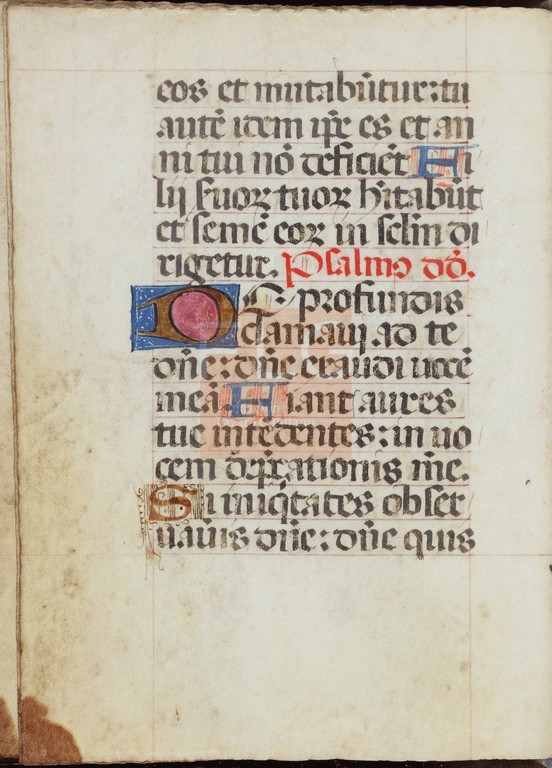 eos et mutabūtur: tu
autē idem ip̄e es et an
ni tui nō deficiēt Fi
lij suoꝝ tuoꝝ h̄itabūt
et semē eoꝝ in sel̄m di
rigetur. Psalmo dd̄.
DE profundis
clamaui ad te
dn̄e: dn̄e exaudi uocē
meā. Fiant aures
tue intēdentes: in uo
cem dep̄cationis m̄e.
Si iniq̄tates obser
uauis dn̄e: dn̄e quis